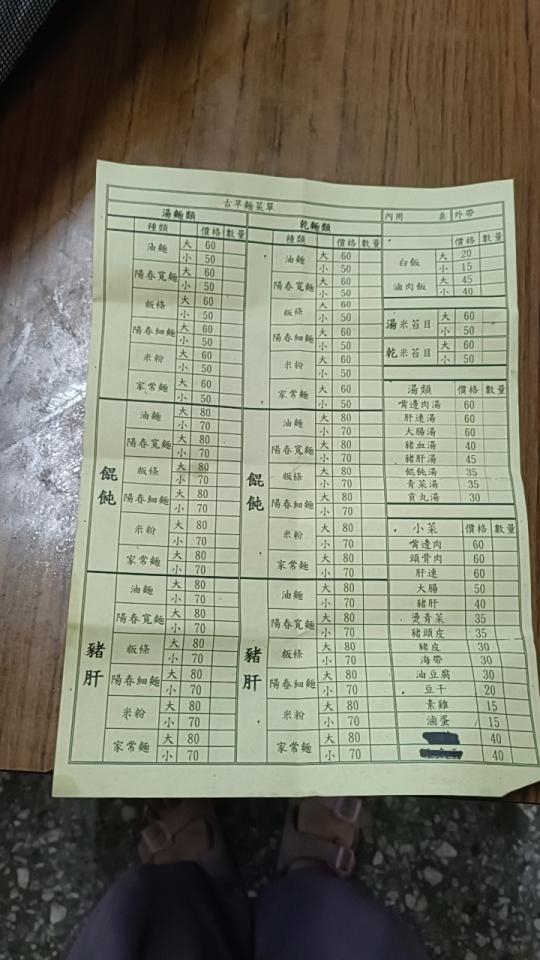 古早麵菜單
湯麵類
種類 價格 數量
油麵 大 60
小 50
陽春寬麵 大 60
小 50
粄條 大 60
小 50
陽春細麵 大 60
小 50
米粉 大 60
小 50
家常麵 大 60
小 50
餛飩
油麵 大 80
小 70
陽春寬麵 大 80
小 70
粄條 大 80
小 70
陽春細麵 大 80
小 70
米粉 大 80
小 70
家常麵 大 80
小 70
豬肝
油麵 大 80
小 70
陽春寬麵 大 80
小 70
粄條 大 80
小 70
陽春細麵 大 80
小 70
米粉 大 80
小 70
家常麵 大 80
小 70
乾麵類
種類 價格 數量
油麵 大 60
小 50
陽春寬麵 大 60
小 50
粄條 大 60
小 50
陽春細麵 大 60
小 50
米粉 大 60
小 50
家常麵 大 60
小 50
餛飩
油麵 大 80
小 70
陽春寬麵 大 80
小 70
粄條 大 80
小 70
陽春細麵 大 80
小 70
米粉 大 80
小 70
家常麵 大 80
小 70
豬肝
油麵 大 80
小 70
陽春寬麵 大 80
小 70
粄條 大 80
小 70
陽春細麵 大 80
小 70
米粉 大 80
小 70
家常麵 大 80
小 70
內用 桌 外帶
價格 數量
白飯 大 20
小 15
滷肉飯 大 45
小 40
湯米苔目 大 60
小 50
乾米苔目 大 60
小 50
湯類 價格 數量
嘴邊肉湯 60
肝連湯 60
大腸湯 60
豬血湯 40
豬肝湯 45
餛飩湯 35
青菜湯 35
貢丸湯 30
小菜 價格 數量
嘴邊肉 60
頭骨肉 60
肝連 60
大腸 50
豬肝 40
燙青菜 35
豬頭皮 35
豬皮 30
海帶 30
油豆腐 30
豆干 20
素雞 15
滷蛋 15
40
40